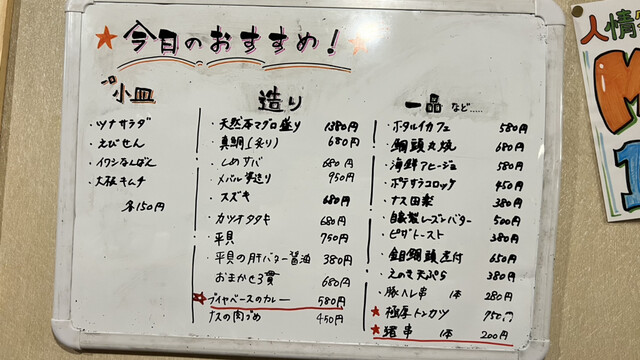 今日のおすすめ!
一口小皿
・ツナサラダ
・えびせん
・イワシなんばん
・大根キムチ
各150円
造り
・天然本マグロ盛り 1380円
・真鯛(炙り) 680円
・しめサバ 680円
・メバル姿造り 950円
・スズキ 680円
・カツオタタキ 680円
・平貝 750円
・平貝の肝バター醤油 380円
おまかせ3貫 680円
ブイヤベースのカレー 580円
ナスの肉づめ 450円
一品 など.....
・ホタルイカフェ 580円
・鯛頭丸焼 680円
・海鮮アヒージョ 580円
・ポテサラコロッケ 450円
・ナス田楽 380円
・自家製レーズンバター 500円
・ピザトースト 380円
・金目鯛頭煮付 650円
・えのき天ぷら 380円
・豚ヘレ串 1本 280円
極厚トンカツ 950円
串 1本 200円
人情